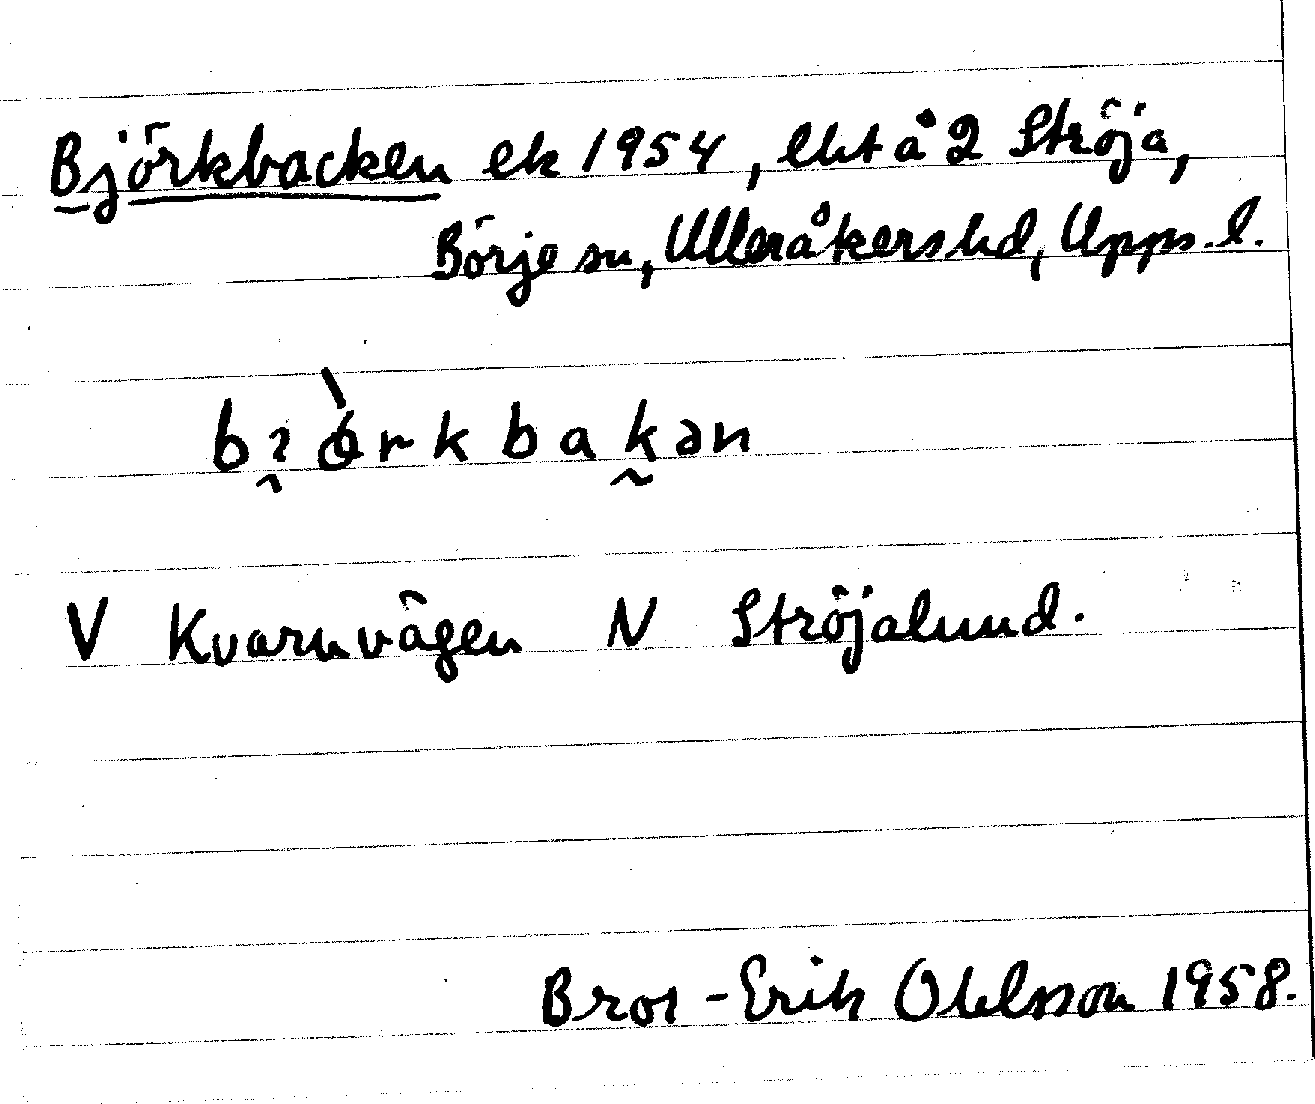 Björkbacken ek 1954, lht å 2 Ströja,
Börje sn, Ulleråkers hd, Upps. l.
bi̯ò̀rkbak̰ən
V Kvarnvägen N Ströjalund.
Bror-Erik Ohlsson 1958.